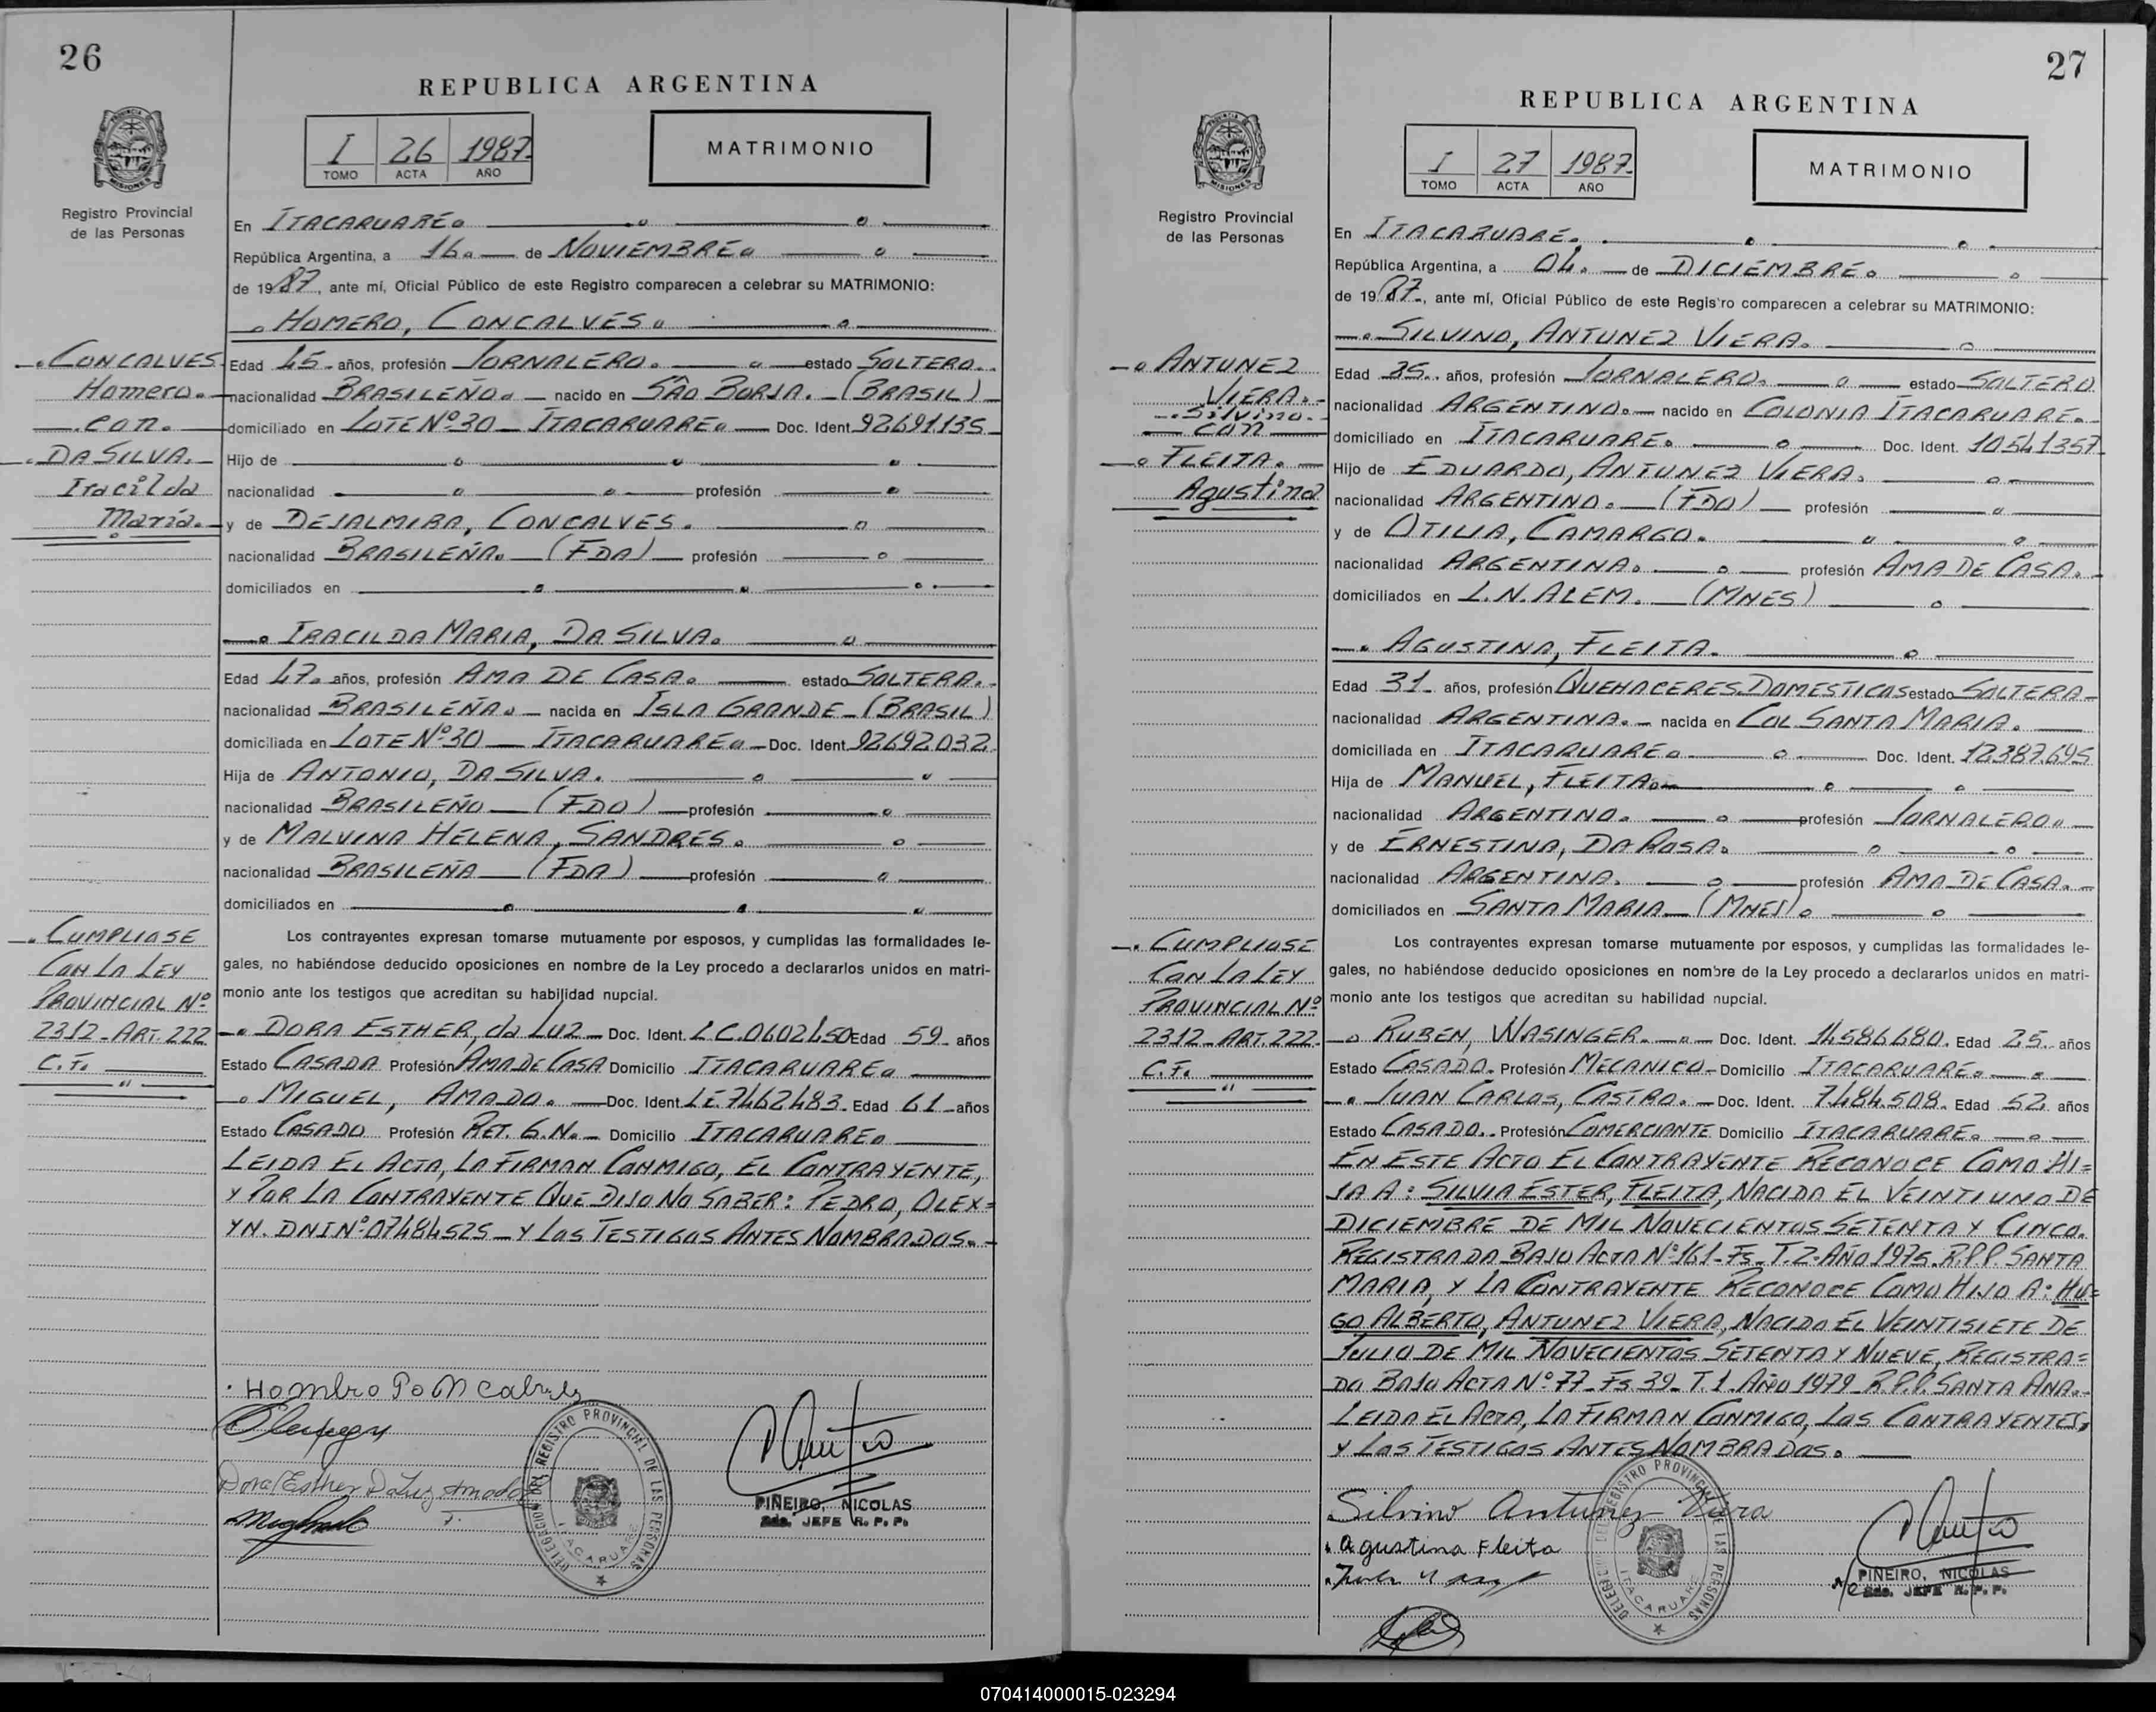 26
REPUBLICA ARGENTINA
I 26 1987
TOMO ACTA AÑO
MATRIMONIO
PROVINCIA DE MISIONES
Registro Provincial
de las Personas
En ITACARUARE.
República Argentina, a 16. de NOVIEMBRE.
de 1987, ante mí, Oficial Público de este Registro comparecen a celebrar su MATRIMONIO:
HOMERO, CONCALVES.
CONCALVES
Homero.
con.
DA SILVA.
Iracilda
María.
Edad 45 años, profesión JORNALERO. estado SOLTERO.
nacionalidad BRASILEÑO. nacido en SÃO BORJA. (BRASIL)
domiciliado en LOTE Nº 30 - ITACARUARE. Doc. Ident. 92691135
Hijo de
nacionalidad profesión
y de DEJALMIRA, CONCALVES.
nacionalidad BRASILEÑA. (FDA) profesión
domiciliados en
IRACILDA MARIA, DA SILVA.
Edad 47. años, profesión AMA DE CASA. estado SOLTERA.
nacionalidad BRASILEÑA. nacida en ISLA GRANDE - (BRASIL)
domiciliada en LOTE Nº 30 - ITACARUARE. Doc. Ident. 92692032
Hija de ANTONIO, DA SILVA.
nacionalidad BRASILEÑO (FDO) profesión
y de MALVINA HELENA, SANDRES.
nacionalidad BRASILEÑA (FDA) profesión
domiciliados en
CUMPLIOSE
CON LA LEY
PROVINCIAL Nº
2312 - ART. 222
C.F.
Los contrayentes expresan tomarse mutuamente por esposos, y cumplidas las formalidades le-
gales, no habiéndose deducido oposiciones en nombre de la Ley procedo a declararlos unidos en matri-
monio ante los testigos que acreditan su habilidad nupcial.
DORA ESTHER, da LUZ - Doc. Ident. LC.0602450 Edad 59 años
Estado CASADA Profesión AMA DE CASA Domicilio ITACARUARE.
MIGUEL, AMADO. Doc. Ident. LE.7462483. Edad 61 años
Estado CASADO Profesión RET. G.N. Domicilio ITACARUARE.
LEIDA EL ACTA, LA FIRMAN CONMIGO, EL CONTRAYENTE,
Y POR LA CONTRAYENTE QUE DIJO NO SABER: PEDRO, OLEX=
YN. DNI Nº 07484525 - Y LOS TESTIGOS ANTES NOMBRADOS.
Dora Esther Da Luz Amado
DELEGACION DEL REGISTRO PROVINCIAL DE LAS PERSONAS
ITACARUARE
PIÑEIRO, NICOLAS
Sdo. JEFE R. P. P.
27
REPUBLICA ARGENTINA
I 27 1987
TOMO ACTA AÑO
MATRIMONIO
PROVINCIA DE MISIONES
Registro Provincial
de las Personas
En ITACARUARE.
República Argentina, a 04. de DICIEMBRE.
de 1987, ante mí, Oficial Público de este Registro comparecen a celebrar su MATRIMONIO:
SILVINO, ANTUNEZ VIERA.
ANTUNEZ
VIERA.
Silvino.
con
FLEITA.
Agustina
Edad 35. años, profesión JORNALERO. estado SOLTERO
nacionalidad ARGENTINO. nacido en COLONIA ITACARUARE.
domiciliado en ITACARUARE. Doc. Ident. 10541357
Hijo de EDUARDO, ANTUNEZ VIERA.
nacionalidad ARGENTINO. (FDO) profesión
y de OTILIA, CAMARGO.
nacionalidad ARGENTINA. profesión AMA DE CASA.
domiciliados en L.N. ALEM. (MNES)
AGUSTINA, FLEITA.
Edad 31. años, profesión QUEHACERES DOMESTICOS estado SOLTERA
nacionalidad ARGENTINA. nacida en COL. SANTA MARIA.
domiciliada en ITACARUARE. Doc. Ident. 12.387.695
Hija de MANUEL, FLEITA.
nacionalidad ARGENTINO. profesión JORNALERO.
y de ERNESTINA, DA ROSA.
nacionalidad ARGENTINA. profesión AMA DE CASA.
domiciliados en SANTA MARIA (MNES).
CUMPLIOSE
CON LA LEY
PROVINCIAL Nº
2312 - ART. 222.
C.F.
Los contrayentes expresan tomarse mutuamente por esposos, y cumplidas las formalidades le-
gales, no habiéndose deducido oposiciones en nombre de la Ley procedo a declararlos unidos en matri-
monio ante los testigos que acreditan su habilidad nupcial.
RUBEN, WASINGER. Doc. Ident. 14586680. Edad 25. años
Estado CASADO. Profesión MECANICO - Domicilio ITACARUARE.
JUAN CARLOS, CASTRO. Doc. Ident. 7.484.508. Edad 52 años
Estado CASADO. Profesión COMERCIANTE Domicilio ITACARUARE.
EN ESTE ACTO EL CONTRAYENTE RECONOCE COMO HI=
JA A: SILVIA ESTER, FLEITA, NACIDA EL VEINTIUNO DE
DICIEMBRE DE MIL NOVECIENTOS SETENTA Y CINCO.
REGISTRADA BAJO ACTA Nº 161 - Fs - T.2 - AÑO 1975. R.P.P. SANTA
MARIA, Y LA CONTRAYENTE RECONOCE COMO HIJO A: HU=
GO ALBERTO, ANTUNEZ VIERA, NACIDO EL VEINTISIETE DE
JULIO DE MIL NOVECIENTOS SETENTA Y NUEVE, REGISTRA=
DO BAJO ACTA Nº 77 - Fs 39 - T.1 - AÑO 1979 R.P.P. SANTA ANA.
LEIDA EL ACTA, LA FIRMAN CONMIGO, LOS CONTRAYENTES,
Y LOS TESTIGOS ANTES NOMBRADOS.
Silvino Antunez Viera
Agustina Fleita
DELEGACION DEL REGISTRO PROVINCIAL DE LAS PERSONAS
ITACARUARE
PIÑEIRO, NICOLAS
Sdo. JEFE R. P. P.
070414000015-023294